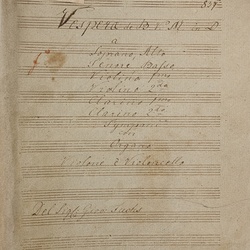 Vespera de B. V. M. in D
a
Soprano, Alto
Tenore Basso
Violino Imo
Violino 2do
Clarino Imo
Clarino 2do
Tympani
Organo
Violone è Violoncello
Del Sig: